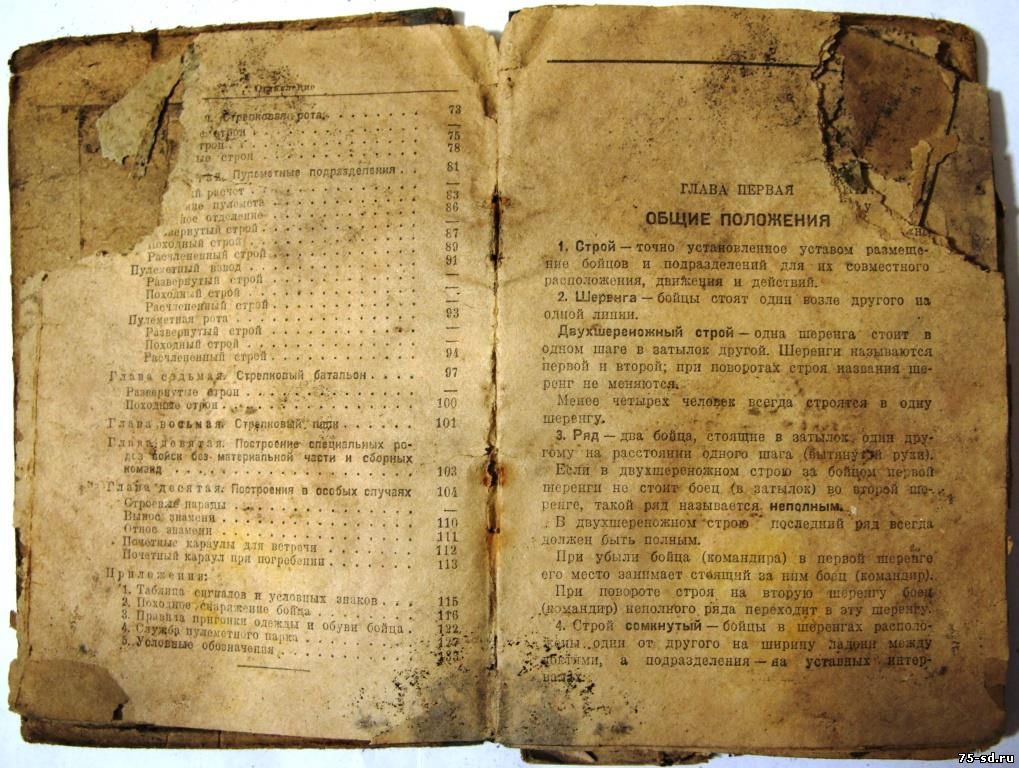 Оглавление
Стрелковая рота 73
строи 75
строи 78
ые строи —
Пулеметные подразделения 81
расчет —
ние пулемета 83
ное отделение 86
звернутый строй —
Походный строй 87
Расчлененный строй 89
Пулеметный взвод 91
Развернутый строй —
Походный строй —
Расчлененный строй —
Пулеметная рота 93
Развернутый строй —
Походный строй —
Расчлененный строй 94
Глава седьмая. Стрелковый батальон 97
Развернутые строи —
Походные строи 100
Глава восьмая. Стрелковый полк 101
Глава девятая. Построение специальных ро-
дов войск без материальной части и сборных
команд 103
Глава десятая. Построения в особых случаях 104
Строевые парады —
Вынос знамени 110
Относ знамени 111
Почетные караулы для встречи 112
Почетный караул при погребении 113
Приложения:
1. Таблица сигналов и условных знаков 115
2. Походное снаряжение бойца 116
3. Правила пригонки одежды и обуви бойца 122
4. Служба пулеметного парка 127
5. Условные обозначения
ГЛАВА ПЕРВАЯ
ОБЩИЕ ПОЛОЖЕНИЯ
1. Строй — точно установленное уставом размеще-
ние бойцов и подразделений для их совместного
расположения, движения и действий.
2. Шеренга — бойцы стоят один возле другого на
одной линии.
Двухшереножный строй — одна шеренга стоит в
одном шаге в затылок другой. Шеренги называются
первой и второй; при поворотах строя названия ше-
ренг не меняются.
Менее четырех человек всегда строятся в одну
шеренгу.
3. Ряд — два бойца, стоящие в затылок один дру-
гому на расстоянии одного шага (вытянутой руки).
Если в двухшереножном строю за бойцом первой
шеренги не стоит боец (в затылок) во второй ше-
ренге, такой ряд называется неполным.
В двухшереножном строю последний ряд всегда
должен быть полным.
При убыли бойца (командира) в первой шеренге
его место занимает стоящий за ним боец (командир).
При повороте строя на вторую шеренгу боец
(командир) неполного ряда переходит в эту шеренгу.
4. Строй сомкнутый — бойцы в шеренгах располо-
жены один от другого на ширину ладони между
локтями, а подразделения — на уставных интер-
валах.
75-sd.ru